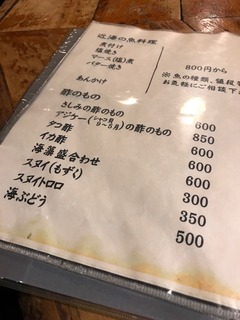 近海の魚料理
煮付け
塩焼き
マース(塩)煮
バター焼き
あんかけ
800円から
※魚の種類、値段
お気軽にご相談下
酢のもの
さしみの酢のもの 600
アジケー(シャコ貝)の酢のもの 850
タコ酢 600
イカ酢 600
海藻盛合わせ 600
スヌイ(もずく) 300
スヌイトロロ 350
海ぶどう 500